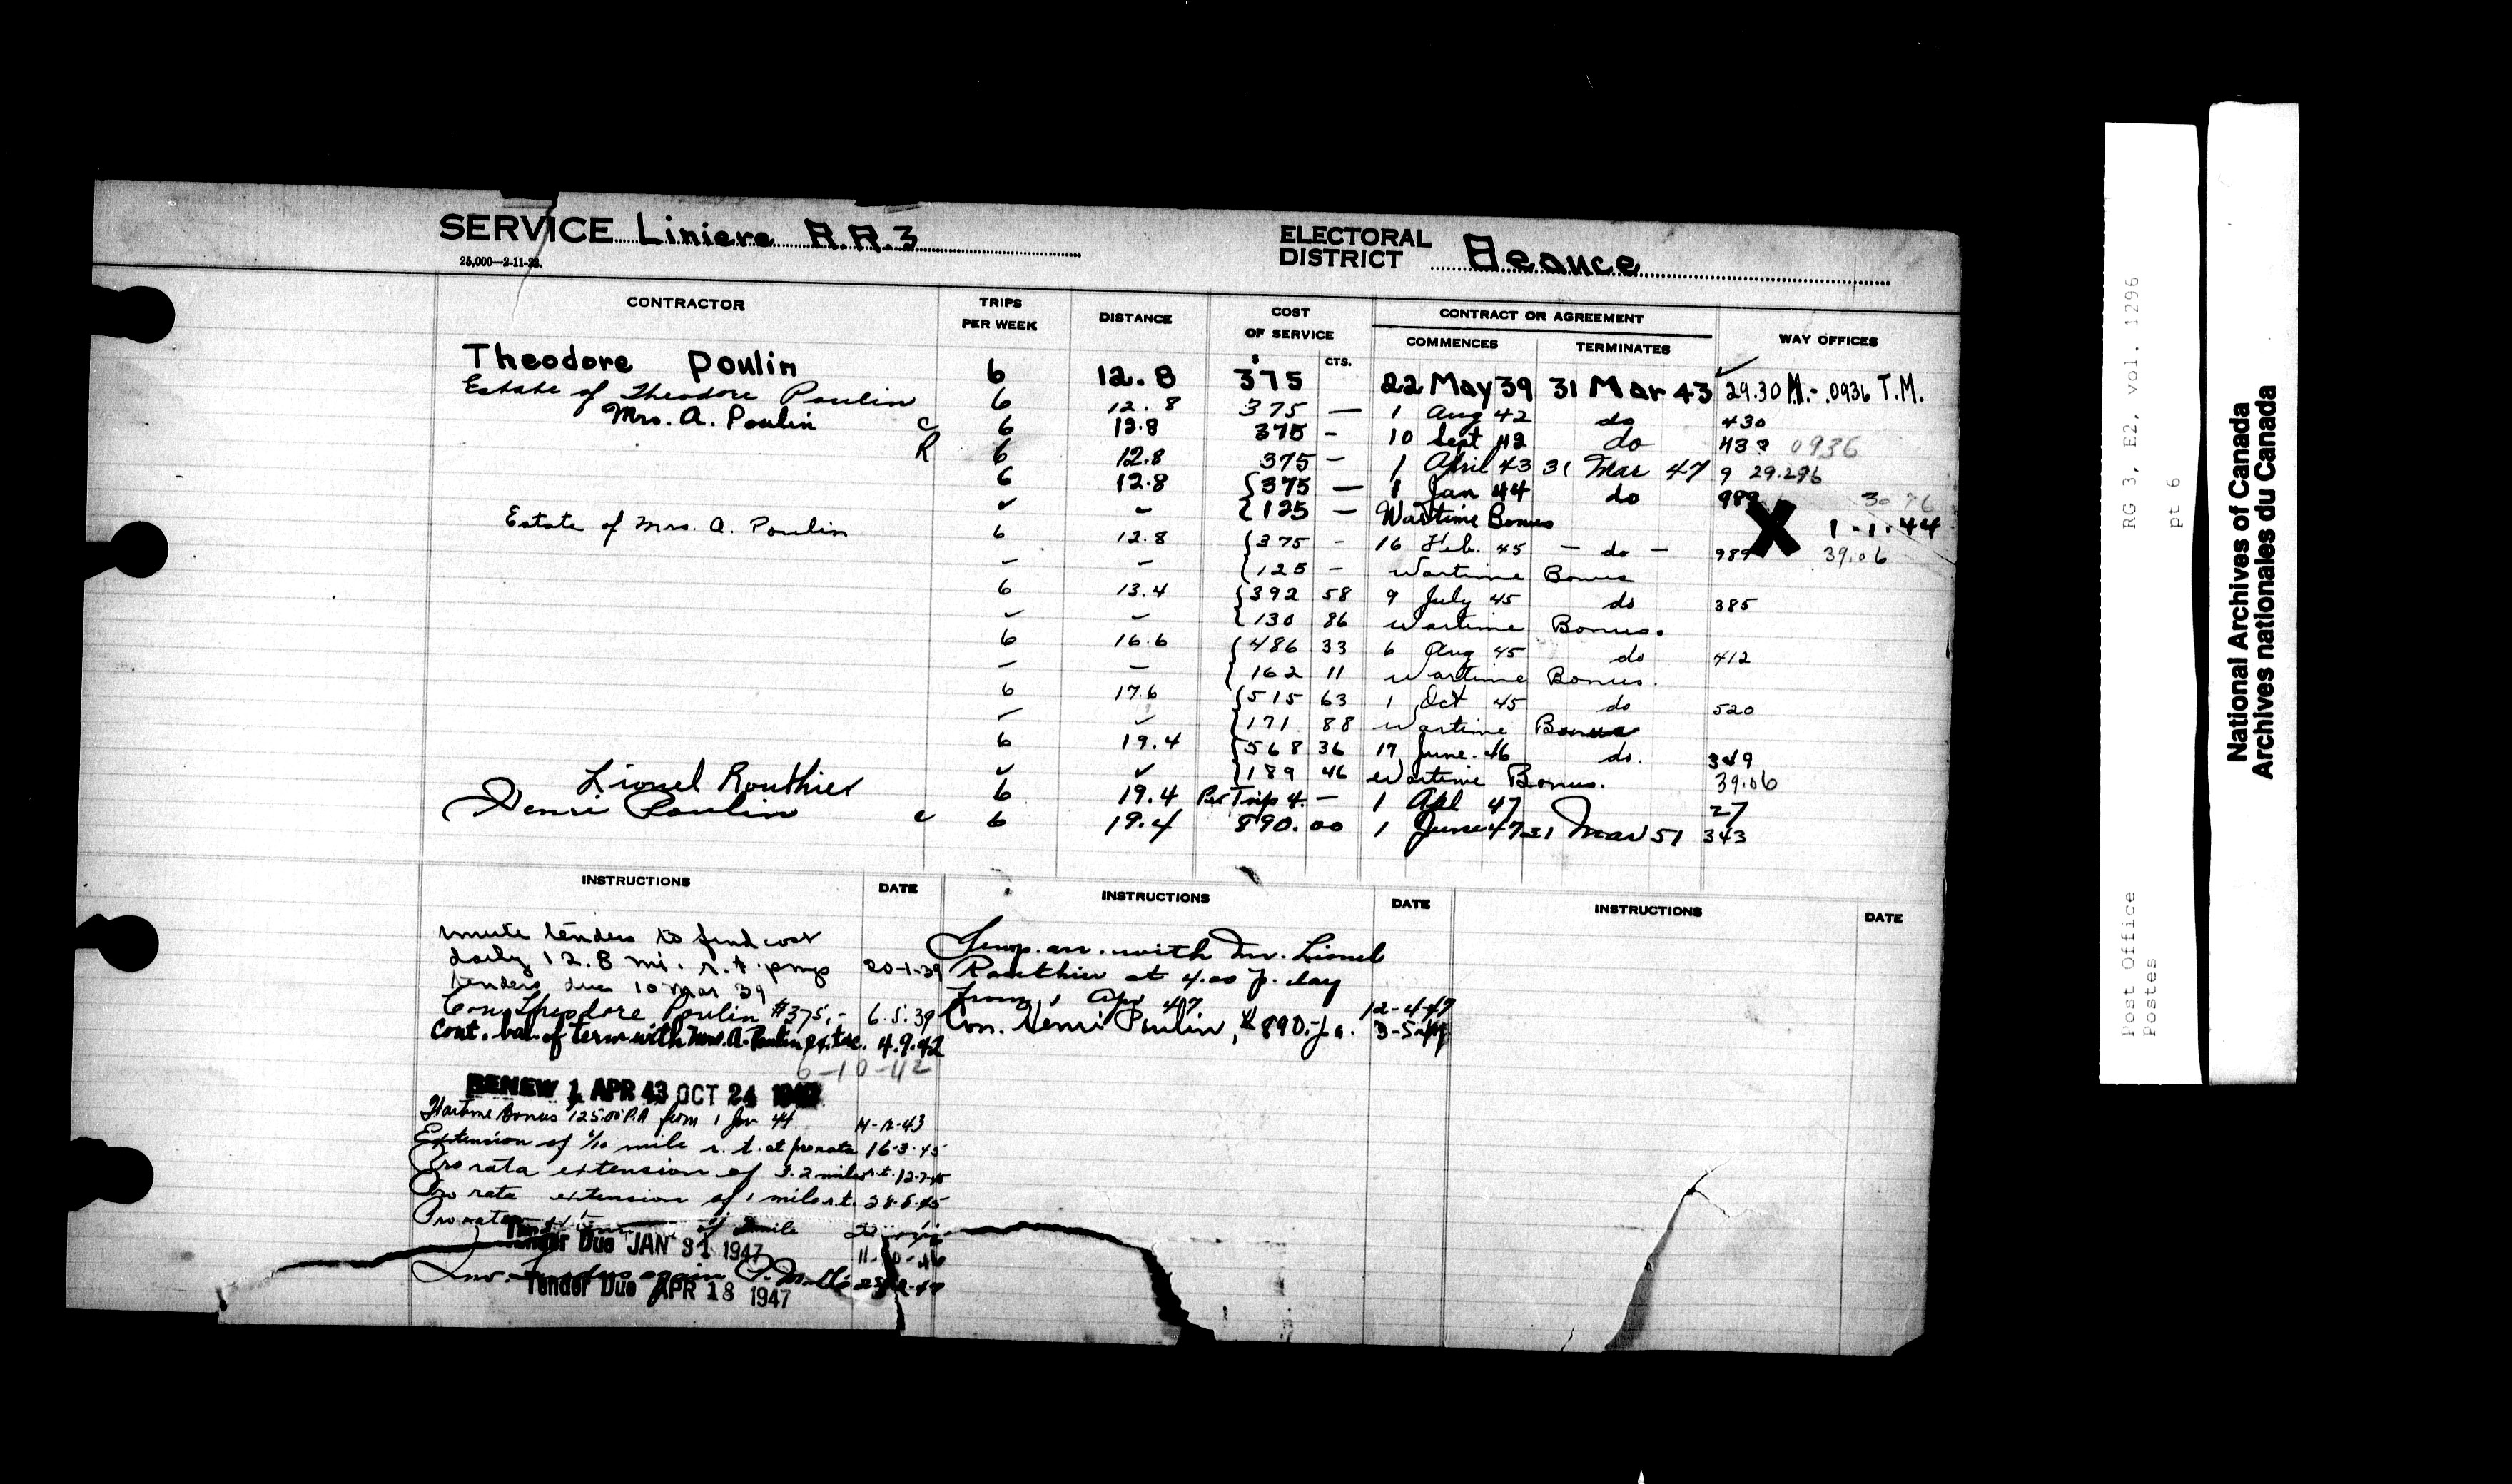 SERVICE Liniere R.R.3
ELECTORAL DISTRICT Beauce
25,000—2-11-
CONTRACTOR TRIPS PER WEEK DISTANCE COST OF SERVICE CONTRACT OR AGREEMENT WAY OFFICES
$ CTS. COMMENCES TERMINATES
Theodore Poulin 6 12.8 375 22 May 39 31 Mar 43 29.30 M.- .0936 T.M.
Estate of Theodore Poulin 6 12.8 375 — 1 Aug 42 do 430
Mrs. A. Poulin C 6 12.8 375 - 10 Sept 42 do 43 0936
R 6 12.8 375 - 1 April 43 31 Mar 47 9 29.296
6 12.8 {375 — 1 Jan 44 do 989 30 76
✓ ✓ {125 — Wartime Bonus X 1-1-44
Estate of Mrs. A. Poulin 6 12.8 {375 - 16 Feb. 45 — do — 989 39.06
— — {125 - Wartime Bonus
6 13.4 {392 58 9 July 45 do 385
✓ ✓ {130 86 Wartime Bonus.
6 16.6 {486 33 6 Aug 45 do 412
— — {162 11 Wartime Bonus.
6 17.6 {515 63 1 Oct 45 do 520
✓ ✓ {171 88 Wartime Bonus
6 19.4 {568 36 17 June. 46 do. 349
✓ ✓ {189 46 Wartime Bonus. 39.06
Lionel Routhier 6 19.4 Per Trip 4. — 1 Apl 47 27
Henri Poulin c 6 19.4 890.00 1 June 47 31 Mar 51 343
INSTRUCTIONS DATE INSTRUCTIONS DATE INSTRUCTIONS DATE
invite tenders to find cost
daily 12.8 mi. r.t. 20-1-39
tenders due 10 Mar 39
Con. Theodore Poulin $375.- 6.5.39
Cont. bal. of term with Mrs. A. Poulin 4.9.42
6-10-42
RENEW 1 APR 43 OCT 24
Wartime Bonus 125.00 P.A from 1 Jan 44 -43
Extension of 6/10 mile r.t. at pro rata 16-3-45
Pro rata extension of 3.2 miles r.t. 12-7-45
Pro rata extension of 1 mile r.t. 28-8-45
Pro rata of mile
Tender Due JAN 31 1947
Inv. Tenders again
Tender Due APR 18 1947
Temp. arr. with Mr. Lionel
Routhier at 4.00 p. day
from 1 Apr 47 12-4-47
Con. Henri Poulin, $890 p.a. 3-5-47
RG 3, E2, vol. 1296
pt 6
Post Office
Postes
National Archives of Canada
Archives nationales du Canada